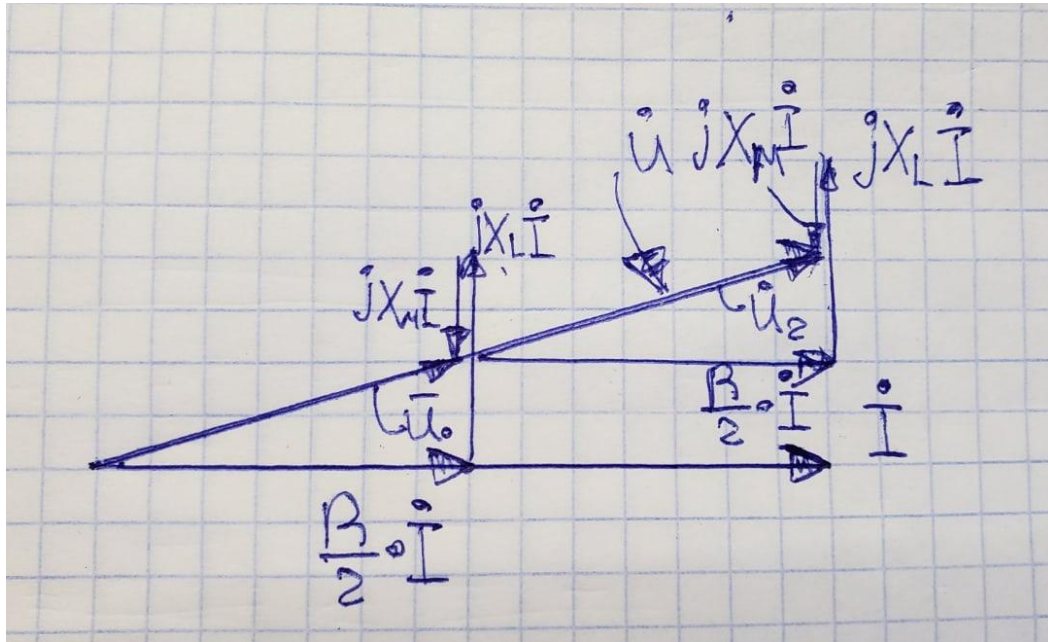 U̇ jX_M İ jX_L İ
jX_L İ
jX_M İ
U̇₂
U̇₀
R/2 · İ
İ
R/2 · İ